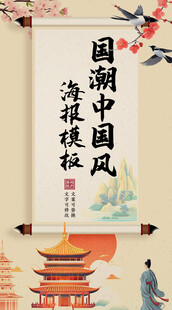 国潮中国风
海报模板
文案可替换
文字可修改